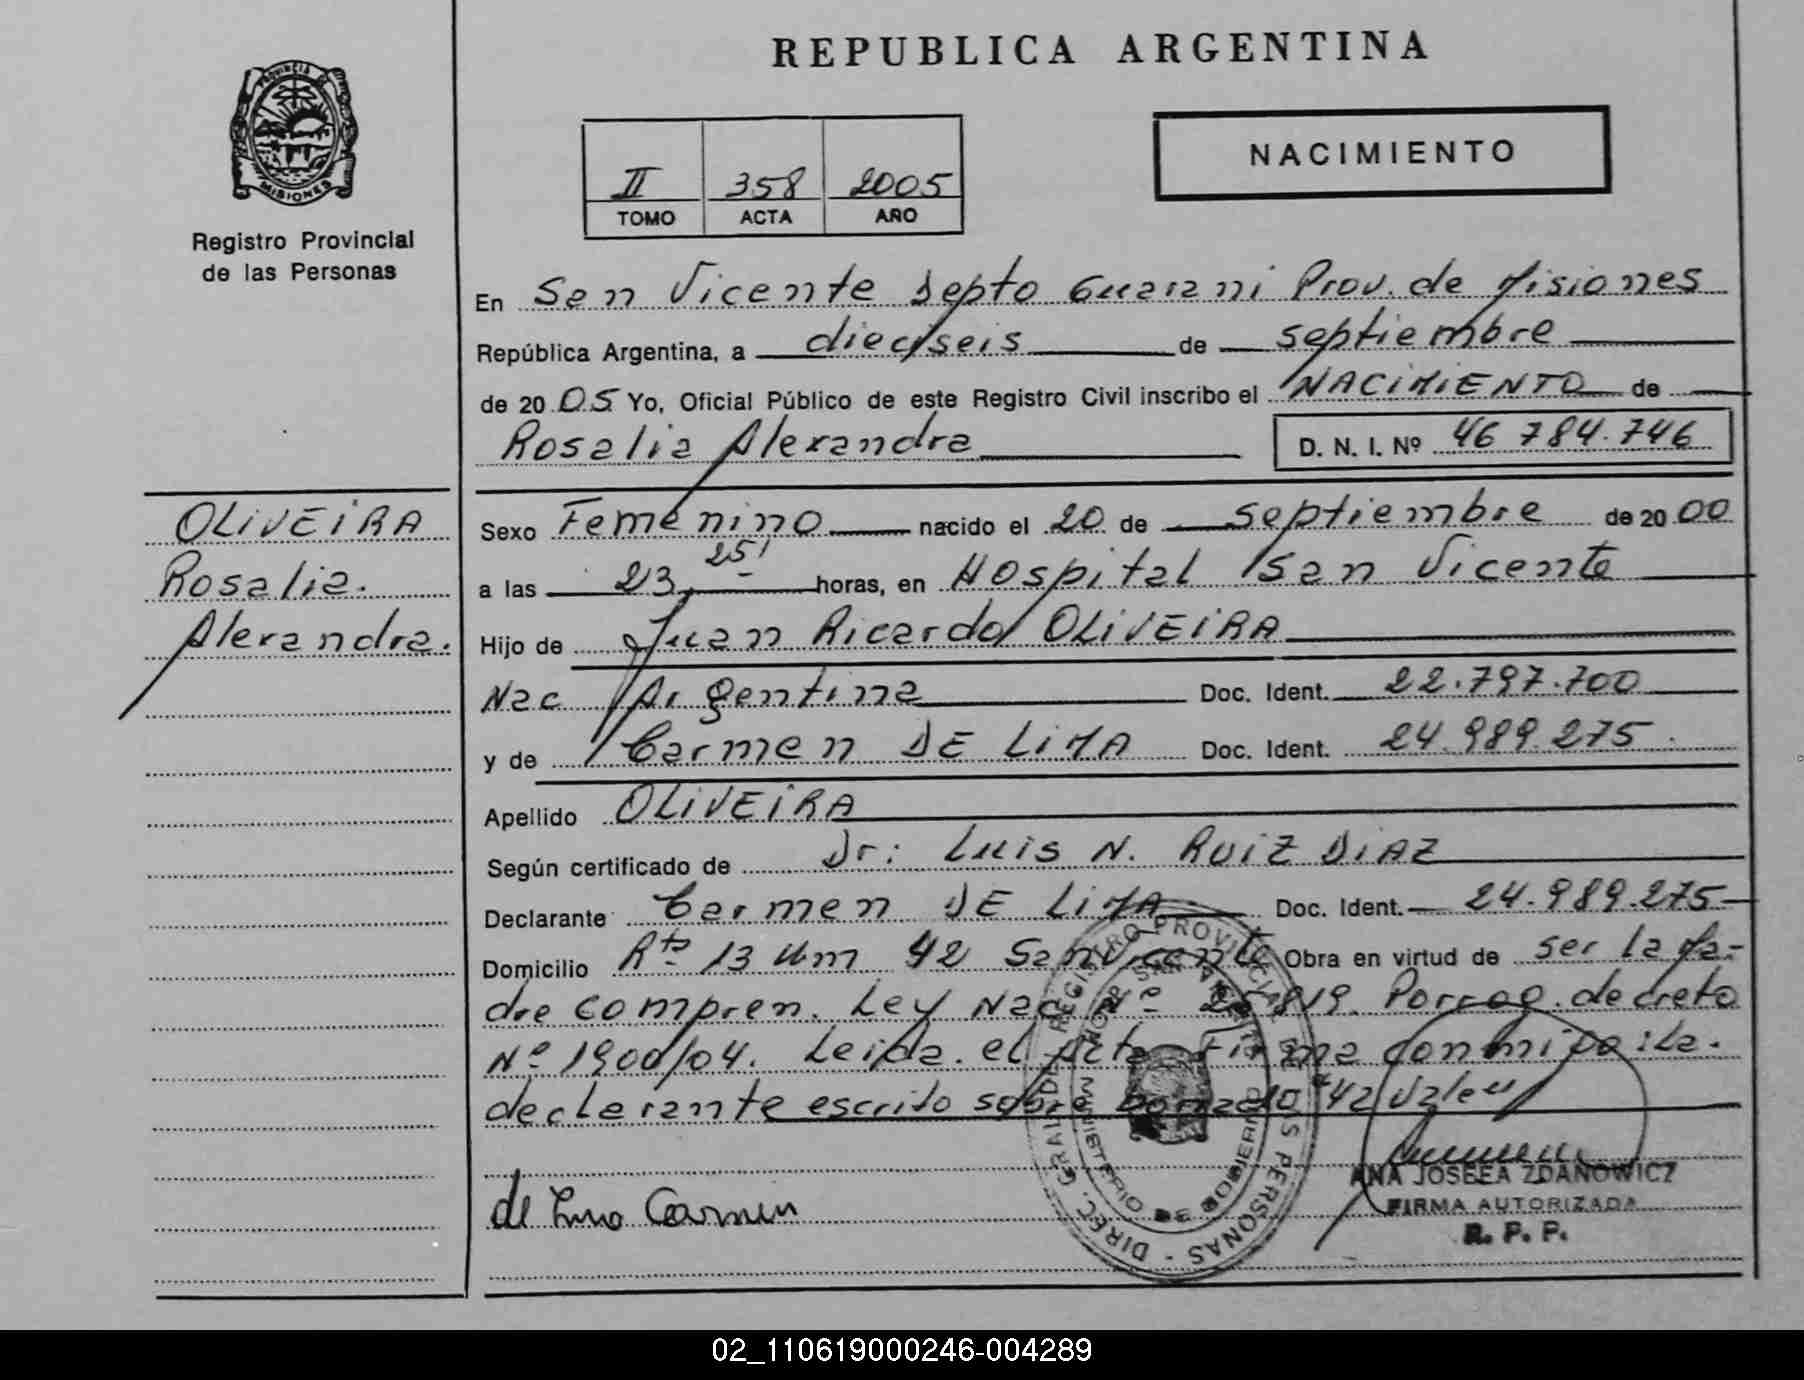 REPUBLICA ARGENTINA
PROVINCIA DE
MISIONES
Registro Provincial
de las Personas
II 358 2005
TOMO ACTA AÑO
NACIMIENTO
En San Vicente Depto Guarani Prov. de Misiones
República Argentina, a dieciseis de septiembre
de 2005 Yo, Oficial Público de este Registro Civil inscribo el NACIMIENTO de
Rosalia Alexandra D. N. I. Nº 46 784.746
OLIVEIRA
Rosalia.
Alexandra.
Sexo Femenino nacido el 20 de septiembre de 2000
a las 23, 25' horas, en Hospital San Vicente
Hijo de Juan Ricardo OLIVEIRA
Nac Argentina Doc. Ident. 22.797.700
y de Carmen DE LIMA Doc. Ident. 24.989.275
Apellido OLIVEIRA
Según certificado de Dr: Luis N. RUIZ DIAZ
Declarante Carmen DE LIMA Doc. Ident. 24.989.275
Domicilio Rta 13 Km 42 San Vicente Obra en virtud de ser la ma-
dre compren. Ley Nac Nº 25819. Porrog. decreto
Nº 1900/04. Leida el Acta Firma conmigo la.
declarante escrito sobre borrado "42 vale"
de Lima Carmen
DIREC. GRAL DE REGISTRO PROVINCIAL DE LAS PERSONAS
HOSP SAN VICENTE
MINISTERIO DE GOBIERNO
ANA JOSEFA ZDANOWICZ
FIRMA AUTORIZADA
R. P. P.
02_110619000246-004289